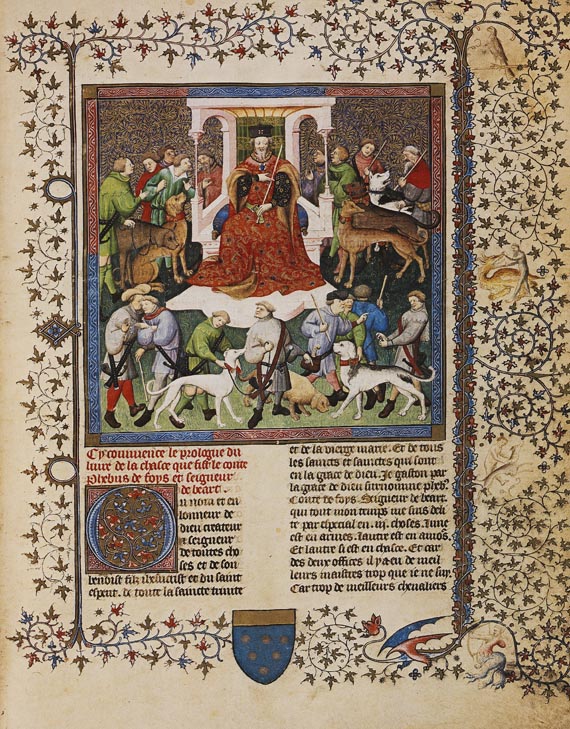 Cy commence le prologue du
liure de la chasce que fist le conte
Phebus de foys et seigneur
de beart.
On nom et en
lonneur de
dieu createur
et seigneur
de toutes cho
ses et de son
benoist filz ihesucrist et du saint
esperit. de toute la saincte trinite
et de la vierge marie. Et de tous
les saincts et sainctes qui sont
en la grace de dieu. Je gaston par
la grace de dieu surnomme pheb
Conte de foys. Seigneur de beart.
qui tout mon temps me suis deli
te par especial en .iii. choses. lune
est en armes. lautre est en amors.
Et lautre si est en chasce. Et car
des deux offices il ya eu de meil
leurs maistres trop que ie ne suy.
Car trop de meilleurs cheualiers